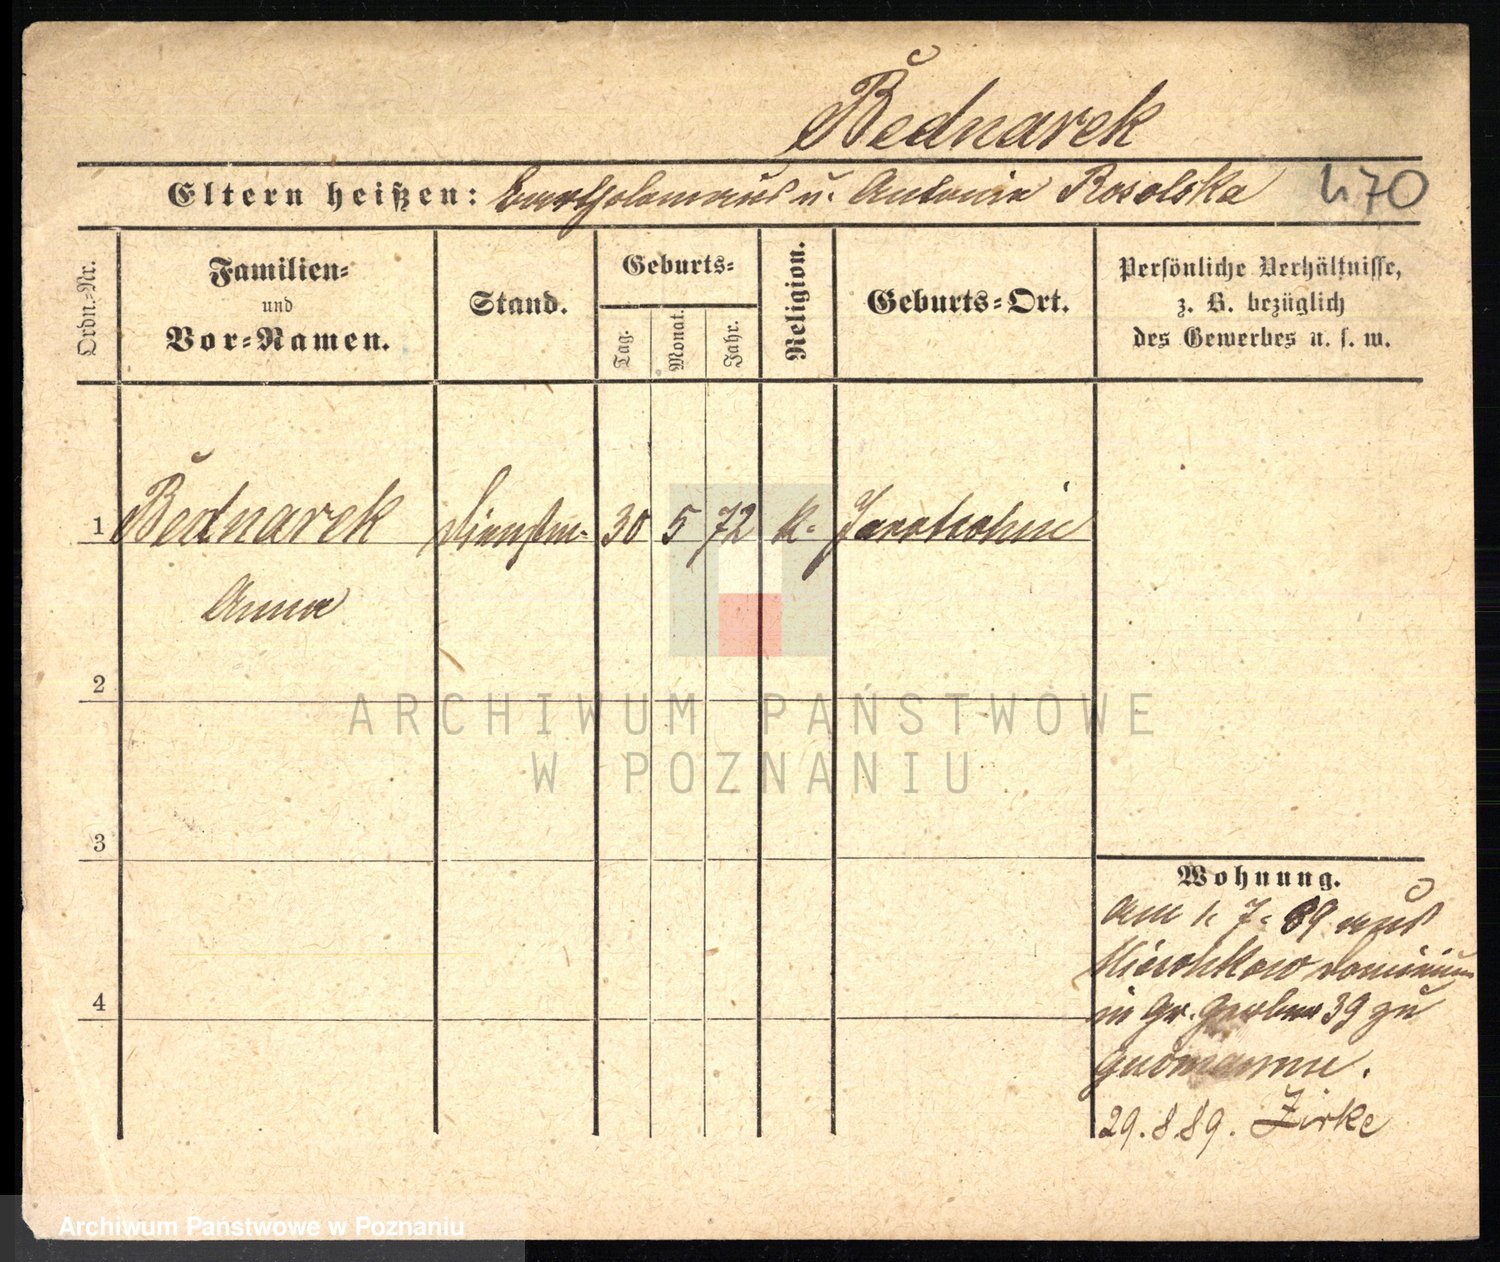 Bednarek
Eltern heißen: Bartholomaeus u. Antonia Rosolska
470
Ordn.-Nr.
Familien- und Vor-Namen.
Stand.
Geburts-
Tag.
Monat.
Jahr.
Religion.
Geburts-Ort.
Persönliche Verhältnisse,
z. B. bezüglich
des Gewerbes u. s. w.
1 Bednarek 30 5 72 k.
Anna
2
ARCHIWUM PAŃSTWOWE
W POZNANIU
3
Wohnung.
am 1. 7. 89 aus
4
in Gr. Gerber 39 zu
29. 8 89. Zirke
Archiwum Państwowe w Poznaniu